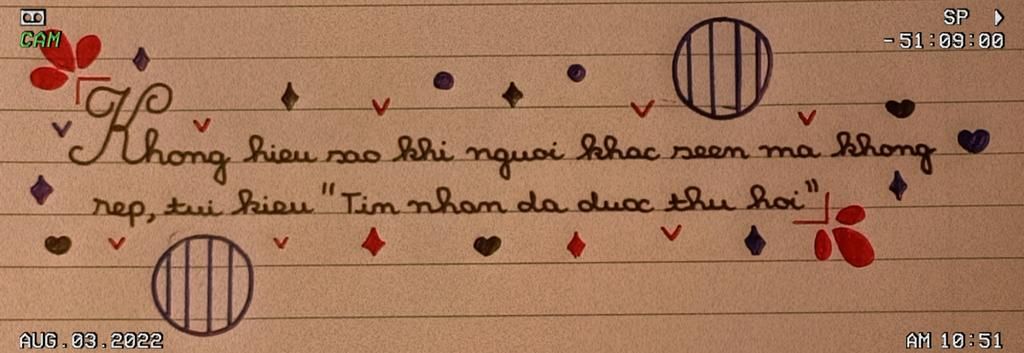 SP
CAM
-51:09:00
Khong hieu sao khi nguoi khac seen ma khong
rep, tui kieu "Tin nhan da duoc thu hoi"
AUG.03.2022
AM 10:51